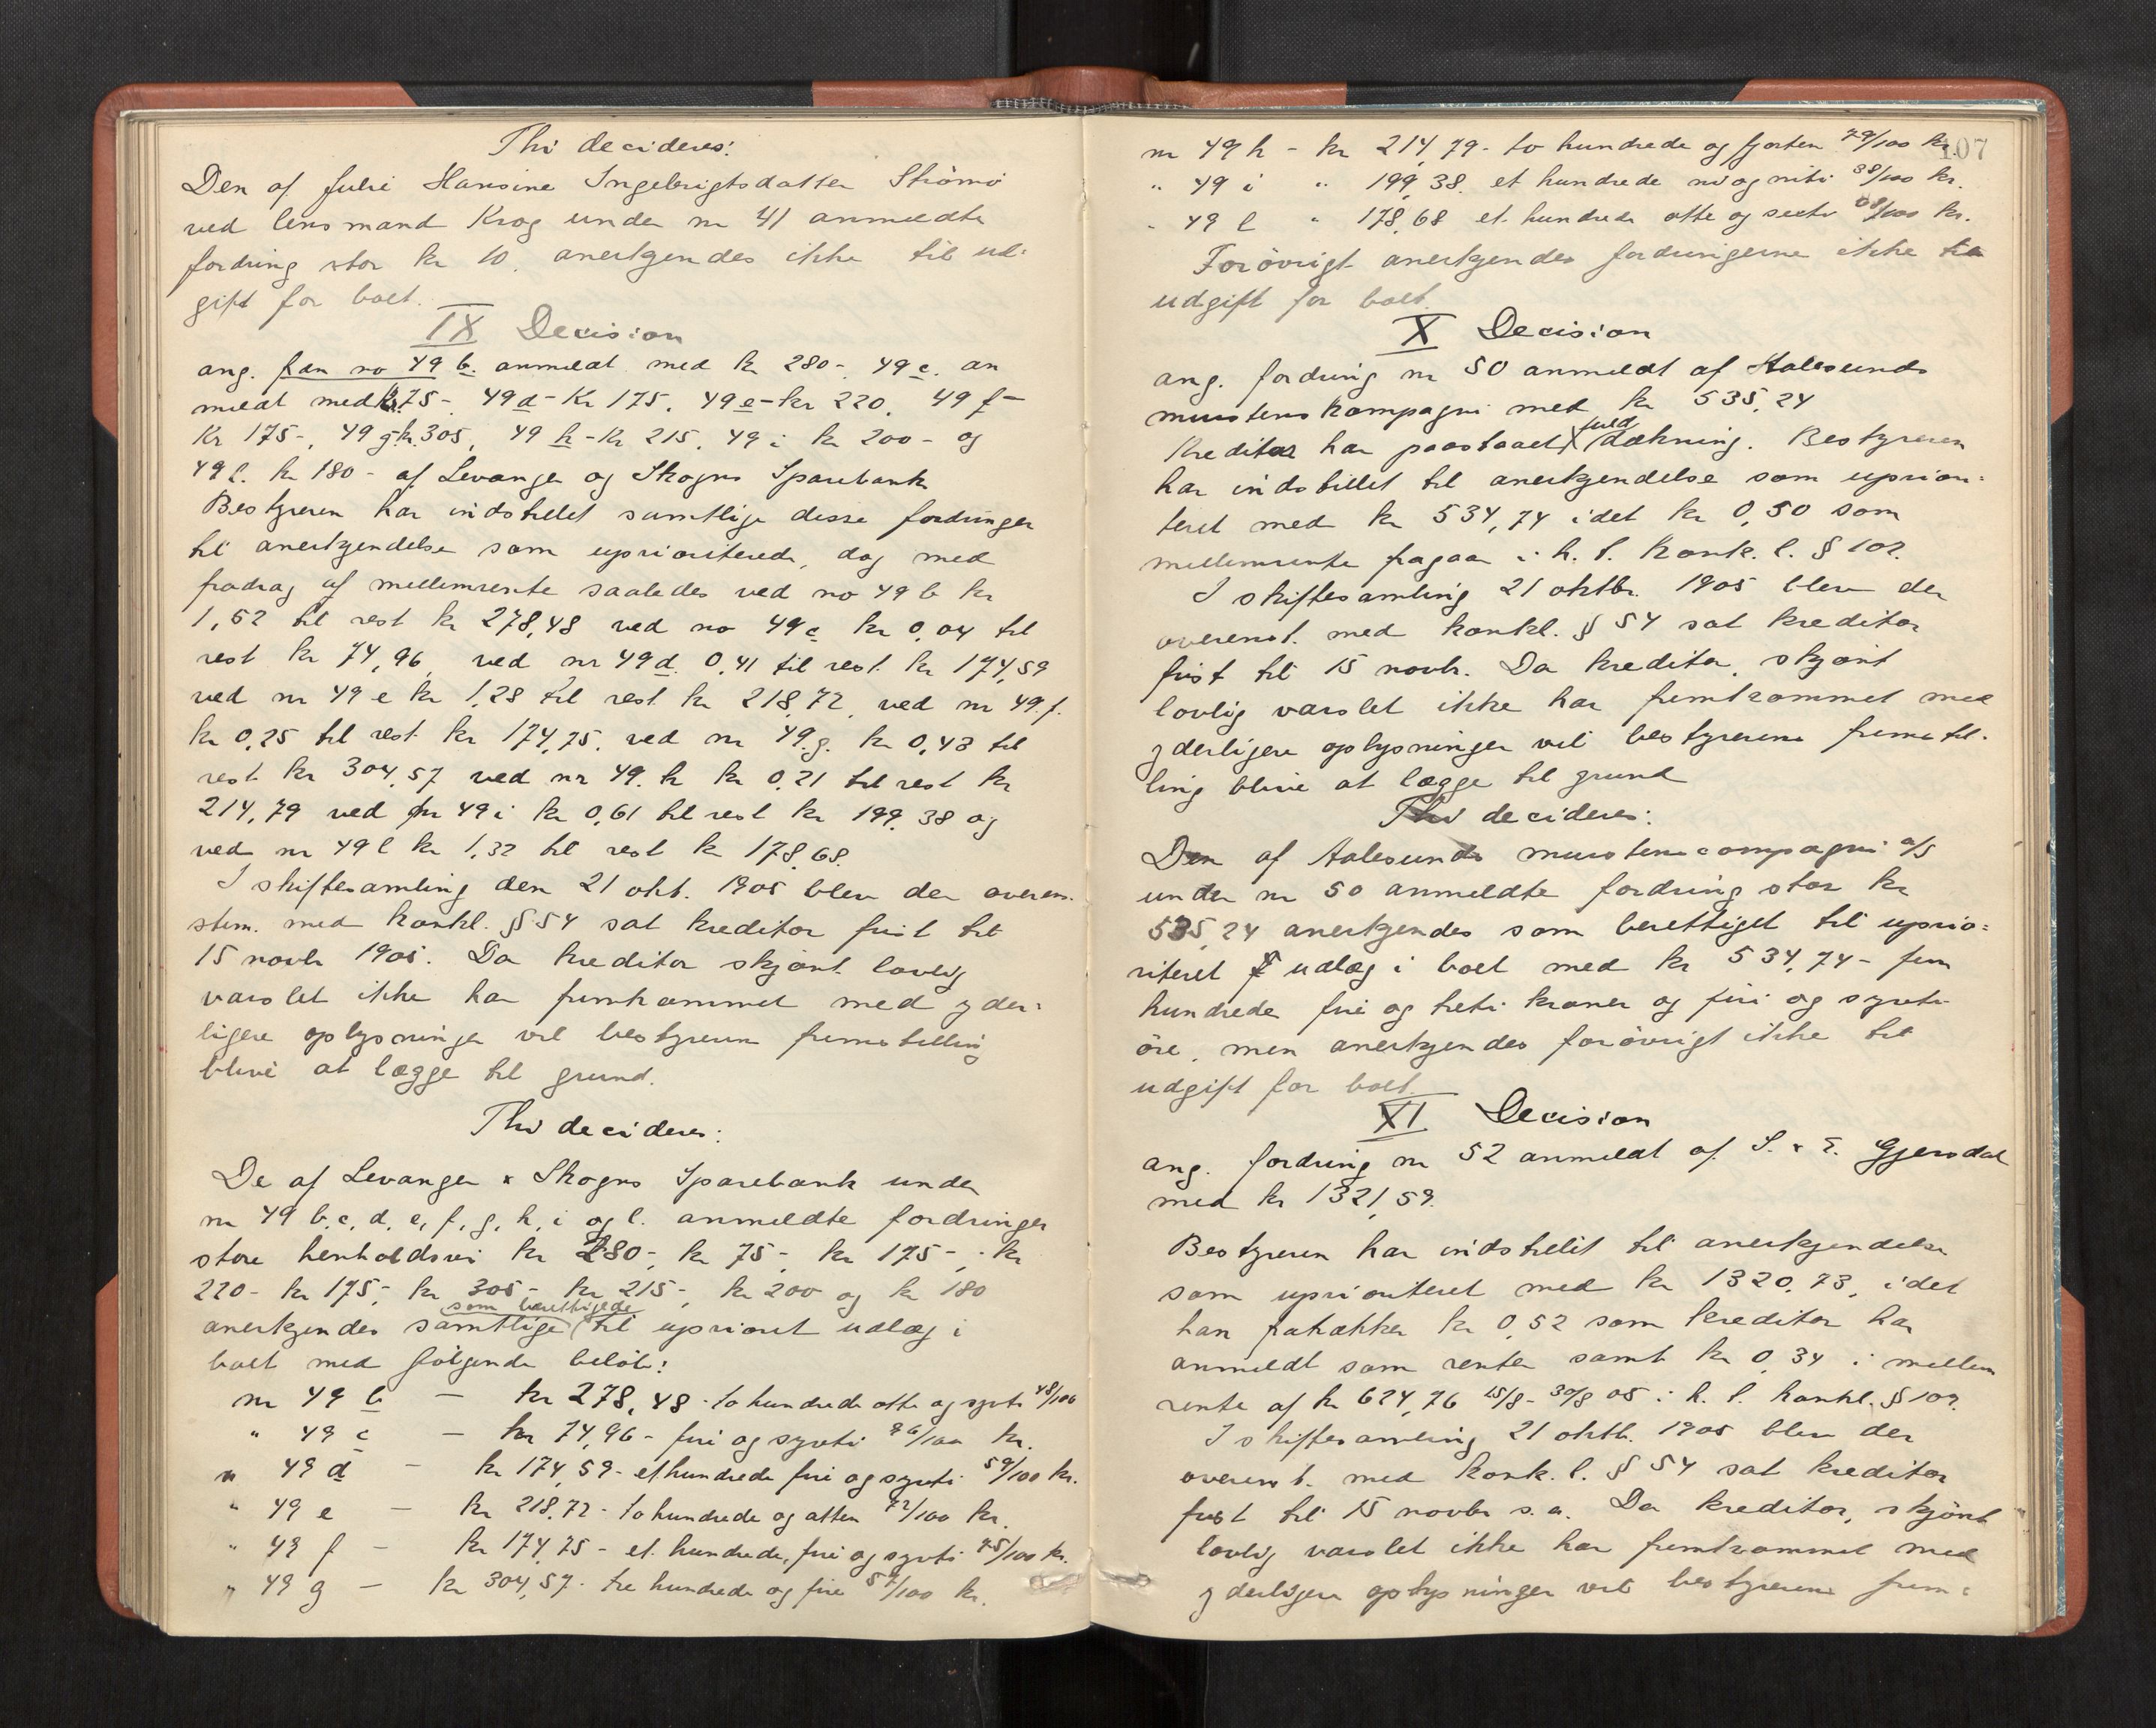 Thi decideres:
Den af Julie Hansine Ingebrigtsdatter Strömö
ved lensmand Krog under nr 41 anmeldte
fordring stor kr 10. anerkjendes ikke til ud:
gift for boet.
IX Decision
ang. fdr no 49 b. anmeldt med kr 280-, 49 c. an
meldt med kr. 75-, 49 d - Kr 175. 49 e - kr 220. 49 f -
Kr 175-, 49 g kr. 305, 49 h - Kr 215. 49 i kr 200- og
49 l. kr 180 - af Levanger og Skogns Sparebank
Bestyreren har indstillet samtlige disse fordringer
til anerkjendelse som uprioriterede, dog med
fradrag af mellemrente saaledes ved no 49 b kr
1,52 til rest kr 278,48 ved no 49 c kr 0,04 til
rest kr 74,96, ved nr 49 d. 0,41 til rest kr 174,59
ved nr 49 e kr 1,28 til rest kr 218,72, ved nr 49. f.
kr 0,25 til rest kr 174,75. ved nr 49. g. kr 0,43 til
rest kr 304,57 ved nr 49. h kr 0,21 til rest kr
214,79 ved nr 49 i kr 0,61 til rest kr 199,38 og
ved nr 49 l kr 1,32 til rest kr 178,68.
I skiftesamling den 21 okt. 1905 blev der overens.
stem. med konkl. § 54 sat kreditor frist til
15 novbr 1905. Da kreditor skjönt lovlig
varslet ikke har fremkommet med yder:
ligere oplysninger vil bestyreren fremstilling
blive at lægge til grund.
Thi decideres:
De af Levanger & Skogns Sparebank under
nr 49 b, c, d, e, f, g, h, i og l. anmeldte fordringer
store henholdsvis kr 280-, kr 75-, kr 175-, kr
220- kr 175-, kr 305-, kr 215-, kr 200 og kr 180
som berettigede
anerkjendes samtlige til upriorit udlæg i
boet med fölgende belöb:
nr 49 b — kr 278,48 - to hundrede otte og sytti 48/100
" 49 c — kr 74,96 - fire og sytti 96/100 kr.
" 49 d - kr 174,59 - et hundrede fire og sytti 59/100 kr.
" 49 e — kr 218,72 - to hundrede og atten 72/100 kr.
" 49 f - kr 174,75 - et hundrede, fire og sytti 75/100 kr.
" 49 g — kr 304,57 - tre hundrede og fire 57/100 kr.
107
nr 49 h - kr 214,79 - to hundrede og fjorten 79/100 kr
" 49 i " 199,38. et hundrede ni og nitti 38/100 kr.
" 49 l " 178,68 et hundrede otte og sytti 68/100 kr.
Forövrigt anerkjendes fordringerne ikke til
udgift for boet.
X Decision
ang. fordring nr 50 anmeldt af Aalesunds
murstenskompagni med kr 535,24
fuld
Kreditor har paastaaet dækning. Bestyreren
har indstillet til anerkjendelse som uprior:
teret med kr 534,74 idet kr 0,50 som
mellemrente fragaar i h. t. konk. l. § 102.
I skiftesamling 21 oktbr. 1905 blev der
overenst. med konkl. § 54 sat kreditor
frist til 15 novbr. Da kreditor, skjönt
lovlig varslet ikke har fremkommet med
yderligere oplysninger vil bestyrerens fremstil-
ling blive at lægge til grund
Thi decideres:
Den af Aalesunds murstenscompagni a/s
under nr 50 anmeldte fordring stor kr
535,24 anerkjendes som berettiget til uprio:
riteret udlæg i boet med kr 534,74 - fem
hundrede fire og tretti kroner og fire og sytti
öre, men anerkjendes forövrigt ikke til
udgift for boet.
XI Decision
ang. fordring nr 52 anmeldt af S. & E. Gjersdal
med kr 1321,59.
Bestyreren har indstillet til anerkjendelse
som uprioriteret med kr 1320,73, idet
han fratrækker kr 0,52 som kreditor har
anmeldt som renter samt kr 0,34 i mellem
rente af kr 624,76 15/8 - 30/8 05 i h. t. konkl. § 102.
I skiftesamling 21 oktb. 1905 blev der
overenst. med konk. l. § 54 sat kreditor
frist til 15 novbr s. a. Da kreditor, skjönt
lovlig varslet ikke har fremkommet med
yderligere oplysninger vil bestyrerens frem: